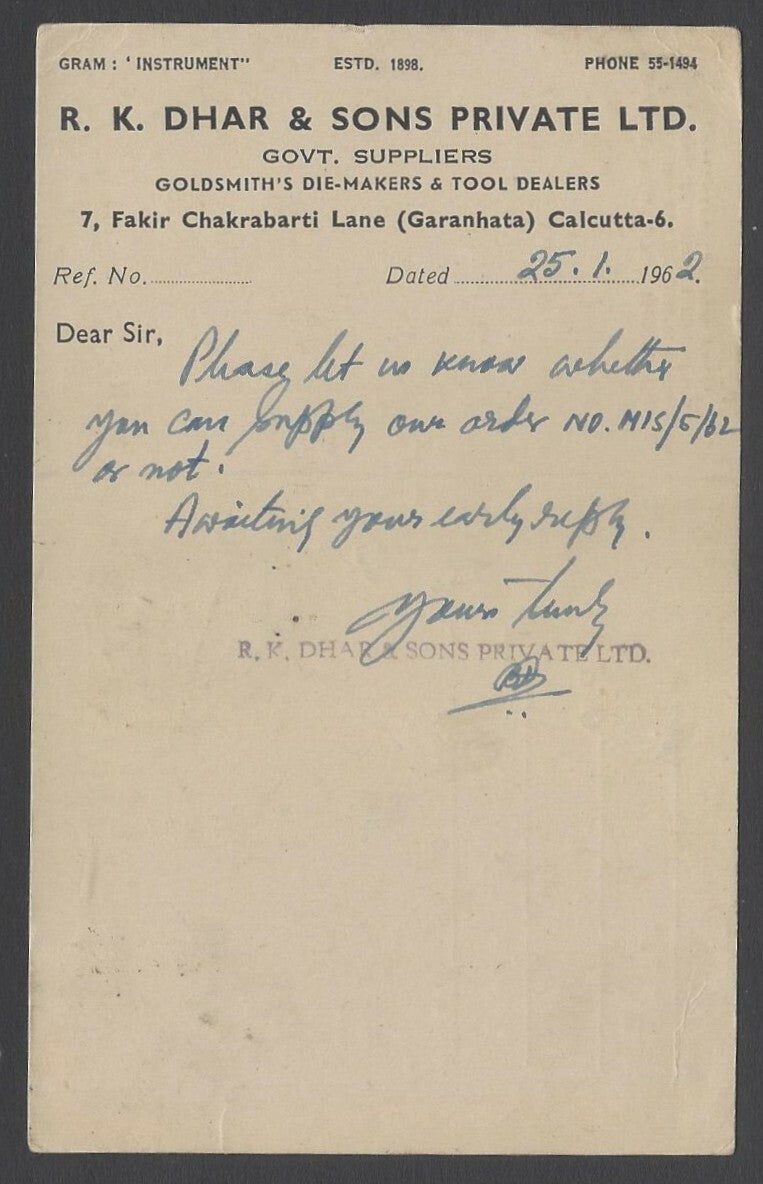 GRAM : ' INSTRUMENT" ESTD. 1898. PHONE 55-1494
R. K. DHAR & SONS PRIVATE LTD.
GOVT. SUPPLIERS
GOLDSMITH'S DIE-MAKERS & TOOL DEALERS
7, Fakir Chakrabarti Lane (Garanhata) Calcutta-6.
Ref. No. Dated 25.1. 1962.
Dear Sir,
Please let us know whether
you can supply our order NO. M15/5/62
or not.
Awaiting your early reply.
Yours truly
R. K. DHAR & SONS PRIVATE LTD.